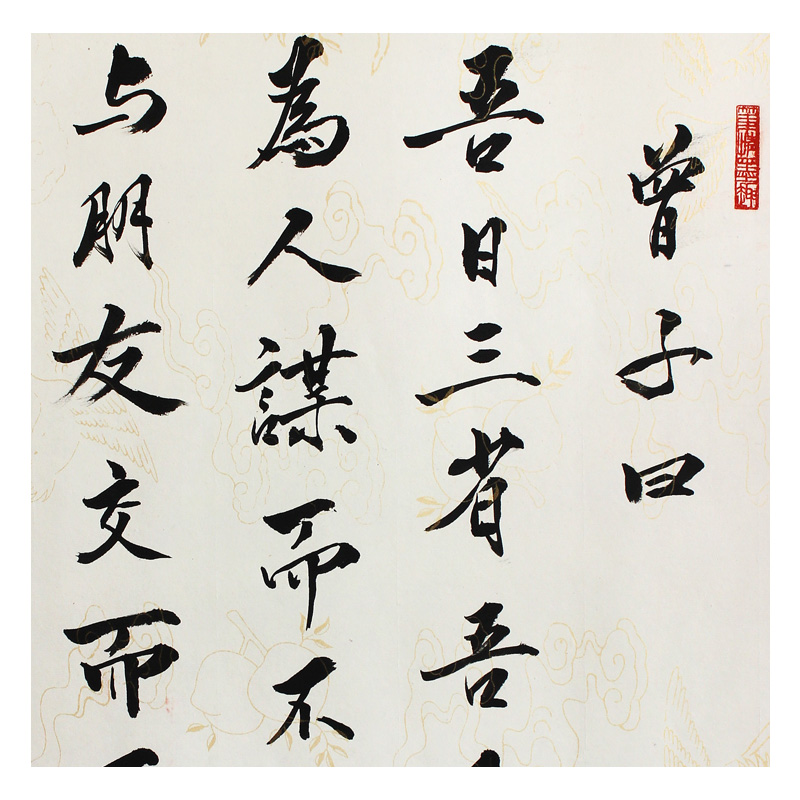 曾子曰
吾日三省吾
為人謀而不
与朋友交而